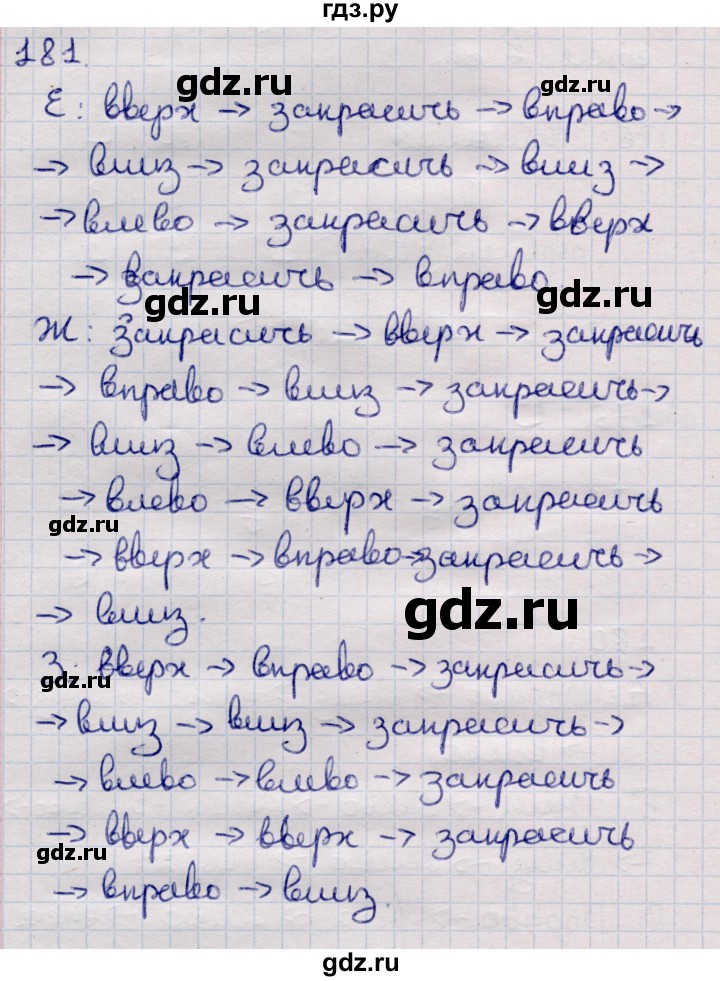 гдз.ру
181.
gdz.ru
gdz.ru
Е: вверх → закрасить → вправо →
→ вниз → закрасить → вниз →
→ влево → закрасить → вверх
→ закрасить → вправо
gdz.ru
gdz.ru
Ж: Закрасить → вверх → закрасить
→ вправо → вниз → закрасить →
→ вниз → влево → закрасить
→ влево → вверх → закрасить
gdz.ru
→ вверх → вправо → закрасить →
→ вниз.
gdz.ru
З. вверх → вправо → закрасить →
gdz.ru
→ вниз → вниз → закрасить →
→ влево → влево → закрасить
→ вверх → вверх → закрасить
gdz.ru
→ вправо → вниз.
gdz.ru